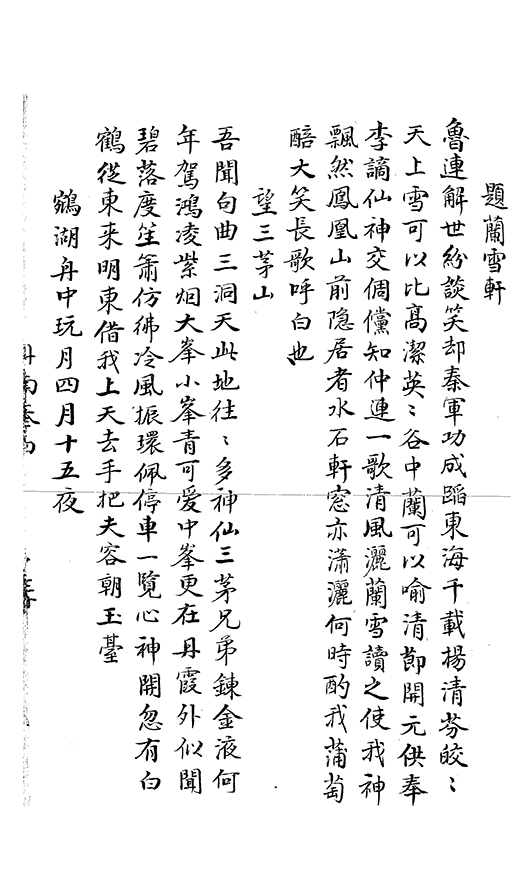 題蘭雪軒
魯連解世紛談笑却秦軍功成蹈東海千載揚清芬皎〻
天上雪可以比高潔英〻谷中蘭可以喻清節開元供奉
李謫仙神交倜儻知仲連一歌清風灑蘭雪讀之使我神
飄然鳳凰山前隐居者水石軒窓亦瀟灑何時酌我蒲萄
醅大笑長歌呼白也
望三茅山
吾聞句曲三洞天此地往〻多神仙三茅兄弟鍊金液何
年駕鴻凌紫烟大峯小峯青可爱中峯更在丹霞外似聞
碧落度笙簫仿彿冷風振環佩停車一覽心神開忽有白
鶴從東来明東借我上天去手把夫容朝玉臺
鵷湖舟中玩月四月十五夜